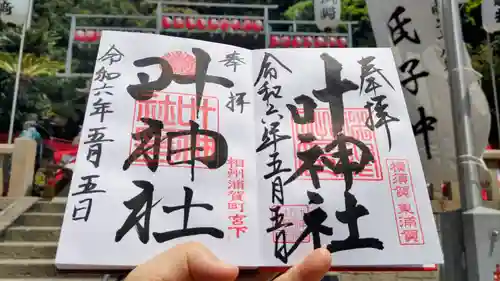 奉拝
叶神社
相州浦賀町宮下
令和六年五月五日
奉拝
叶神社
横須賀 東浦賀
令和六年五月五日
氏子中